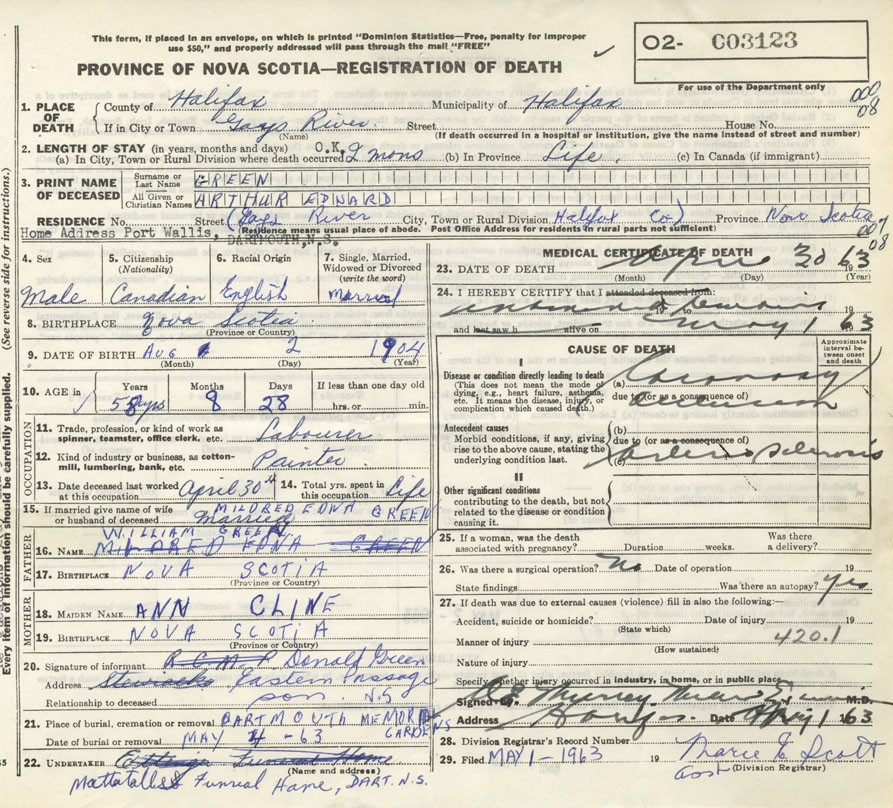 This form, if placed in an envelope, on which is printed "Dominion Statistics—Free, penalty for improper
use $50," and properly addressed will pass through the mail "FREE"
O2- C03123
PROVINCE OF NOVA SCOTIA—REGISTRATION OF DEATH
For use of the Department only
1. PLACE OF DEATH County of Halifax Municipality of Halifax 000 08
If in City or Town Gays River Street House No.
(Name) (If death occurred in a hospital or institution, give the name instead of street and number)
2. LENGTH OF STAY (in years, months and days) O.K.
(a) In City, Town or Rural Division where death occurred 2 mons (b) In Province Life. (c) In Canada (if immigrant)
3. PRINT NAME OF DECEASED Surname or Last Name GREEN
All Given or Christian Names ARTHUR EDWARD
RESIDENCE No. Street (Gays River City, Town or Rural Division Halifax Co.) Province Nova Scotia
Home Address Port Wallis, DARTMOUTH, N.S. (Residence means usual place of abode. Post Office Address for residents in rural parts not sufficient) 08
4. Sex 5. Citizenship (Nationality) 6. Racial Origin 7. Single, Married, Widowed or Divorced (write the word)
Male Canadian English Married
8. BIRTHPLACE Nova Scotia
(Province or Country)
9. DATE OF BIRTH Aug 2 1904
(Month) (Day) (Year)
10. AGE in Years Months Days If less than one day old
58 yrs 8 28 hrs. or min.
OCCUPATION
11. Trade, profession, or kind of work as spinner, teamster, office clerk, etc. Labourer
12. Kind of industry or business, as cotton-mill, lumbering, bank, etc. Painter.
13. Date deceased last worked at this occupation April 30th 14. Total yrs. spent in this occupation Life
15. If married give name of wife or husband of deceased MILDRED EDNA GREEN
Married
FATHER
WILLIAM GREEN
16. NAME MILDRED EDNA GREEN
17. BIRTHPLACE NOVA SCOTIA
(Province or Country)
MOTHER
18. MAIDEN NAME ANN CLINE
19. BIRTHPLACE NOVA SCOTIA
(Province or Country)
20. Signature of informant R C M P Donald Green
Address Stewiacke Eastern Passage
Relationship to deceased son. N.S
21. Place of burial, cremation or removal DARTMOUTH MEMORIAL GARDENS
Date of burial or removal MAY 4 -63
22. UNDERTAKER Funeral Home
(Name and address)
Funreal Home, DART. N.S.
MEDICAL CERTIFICATE OF DEATH
23. DATE OF DEATH April 30 1963
(Month) (Day) (Year)
24. I HEREBY CERTIFY that I attended deceased from:
19 to
and last saw h alive on May 1 63
CAUSE OF DEATH
Approximate interval between onset and death
I
Disease or condition directly leading to death (a) Coronary
(This does not mean the mode of dying, e.g., heart failure, asthenia, etc. It means the disease, injury, or complication which caused death.)
due to (or as a consequence of) occlusion
Antecedent causes (b)
Morbid conditions, if any, giving rise to the above cause, stating the underlying condition last.
due to (or as a consequence of)
(c) Arterio sclerosis
II
Other significant conditions
contributing to the death, but not related to the disease or condition causing it.
25. If a woman, was the death associated with pregnancy? Duration weeks. Was there a delivery?
26. Was there a surgical operation? No Date of operation 19
State findings Was there an autopsy? yes
27. If death was due to external causes (violence) fill in also the following:—
Accident, suicide or homicide? Date of injury 19
(State which)
Manner of injury 420.1
(How sustained)
Nature of injury
Specify whether injury occurred in industry, in home, or in public place
Signed by Murray M.D.
Address Date May 1 63
28. Division Registrar's Record Number
29. Filed MAY 1-1963 19 Marie E Scott
(Division Registrar)
(See reverse side for instructions.)
Every item of information should be carefully supplied.